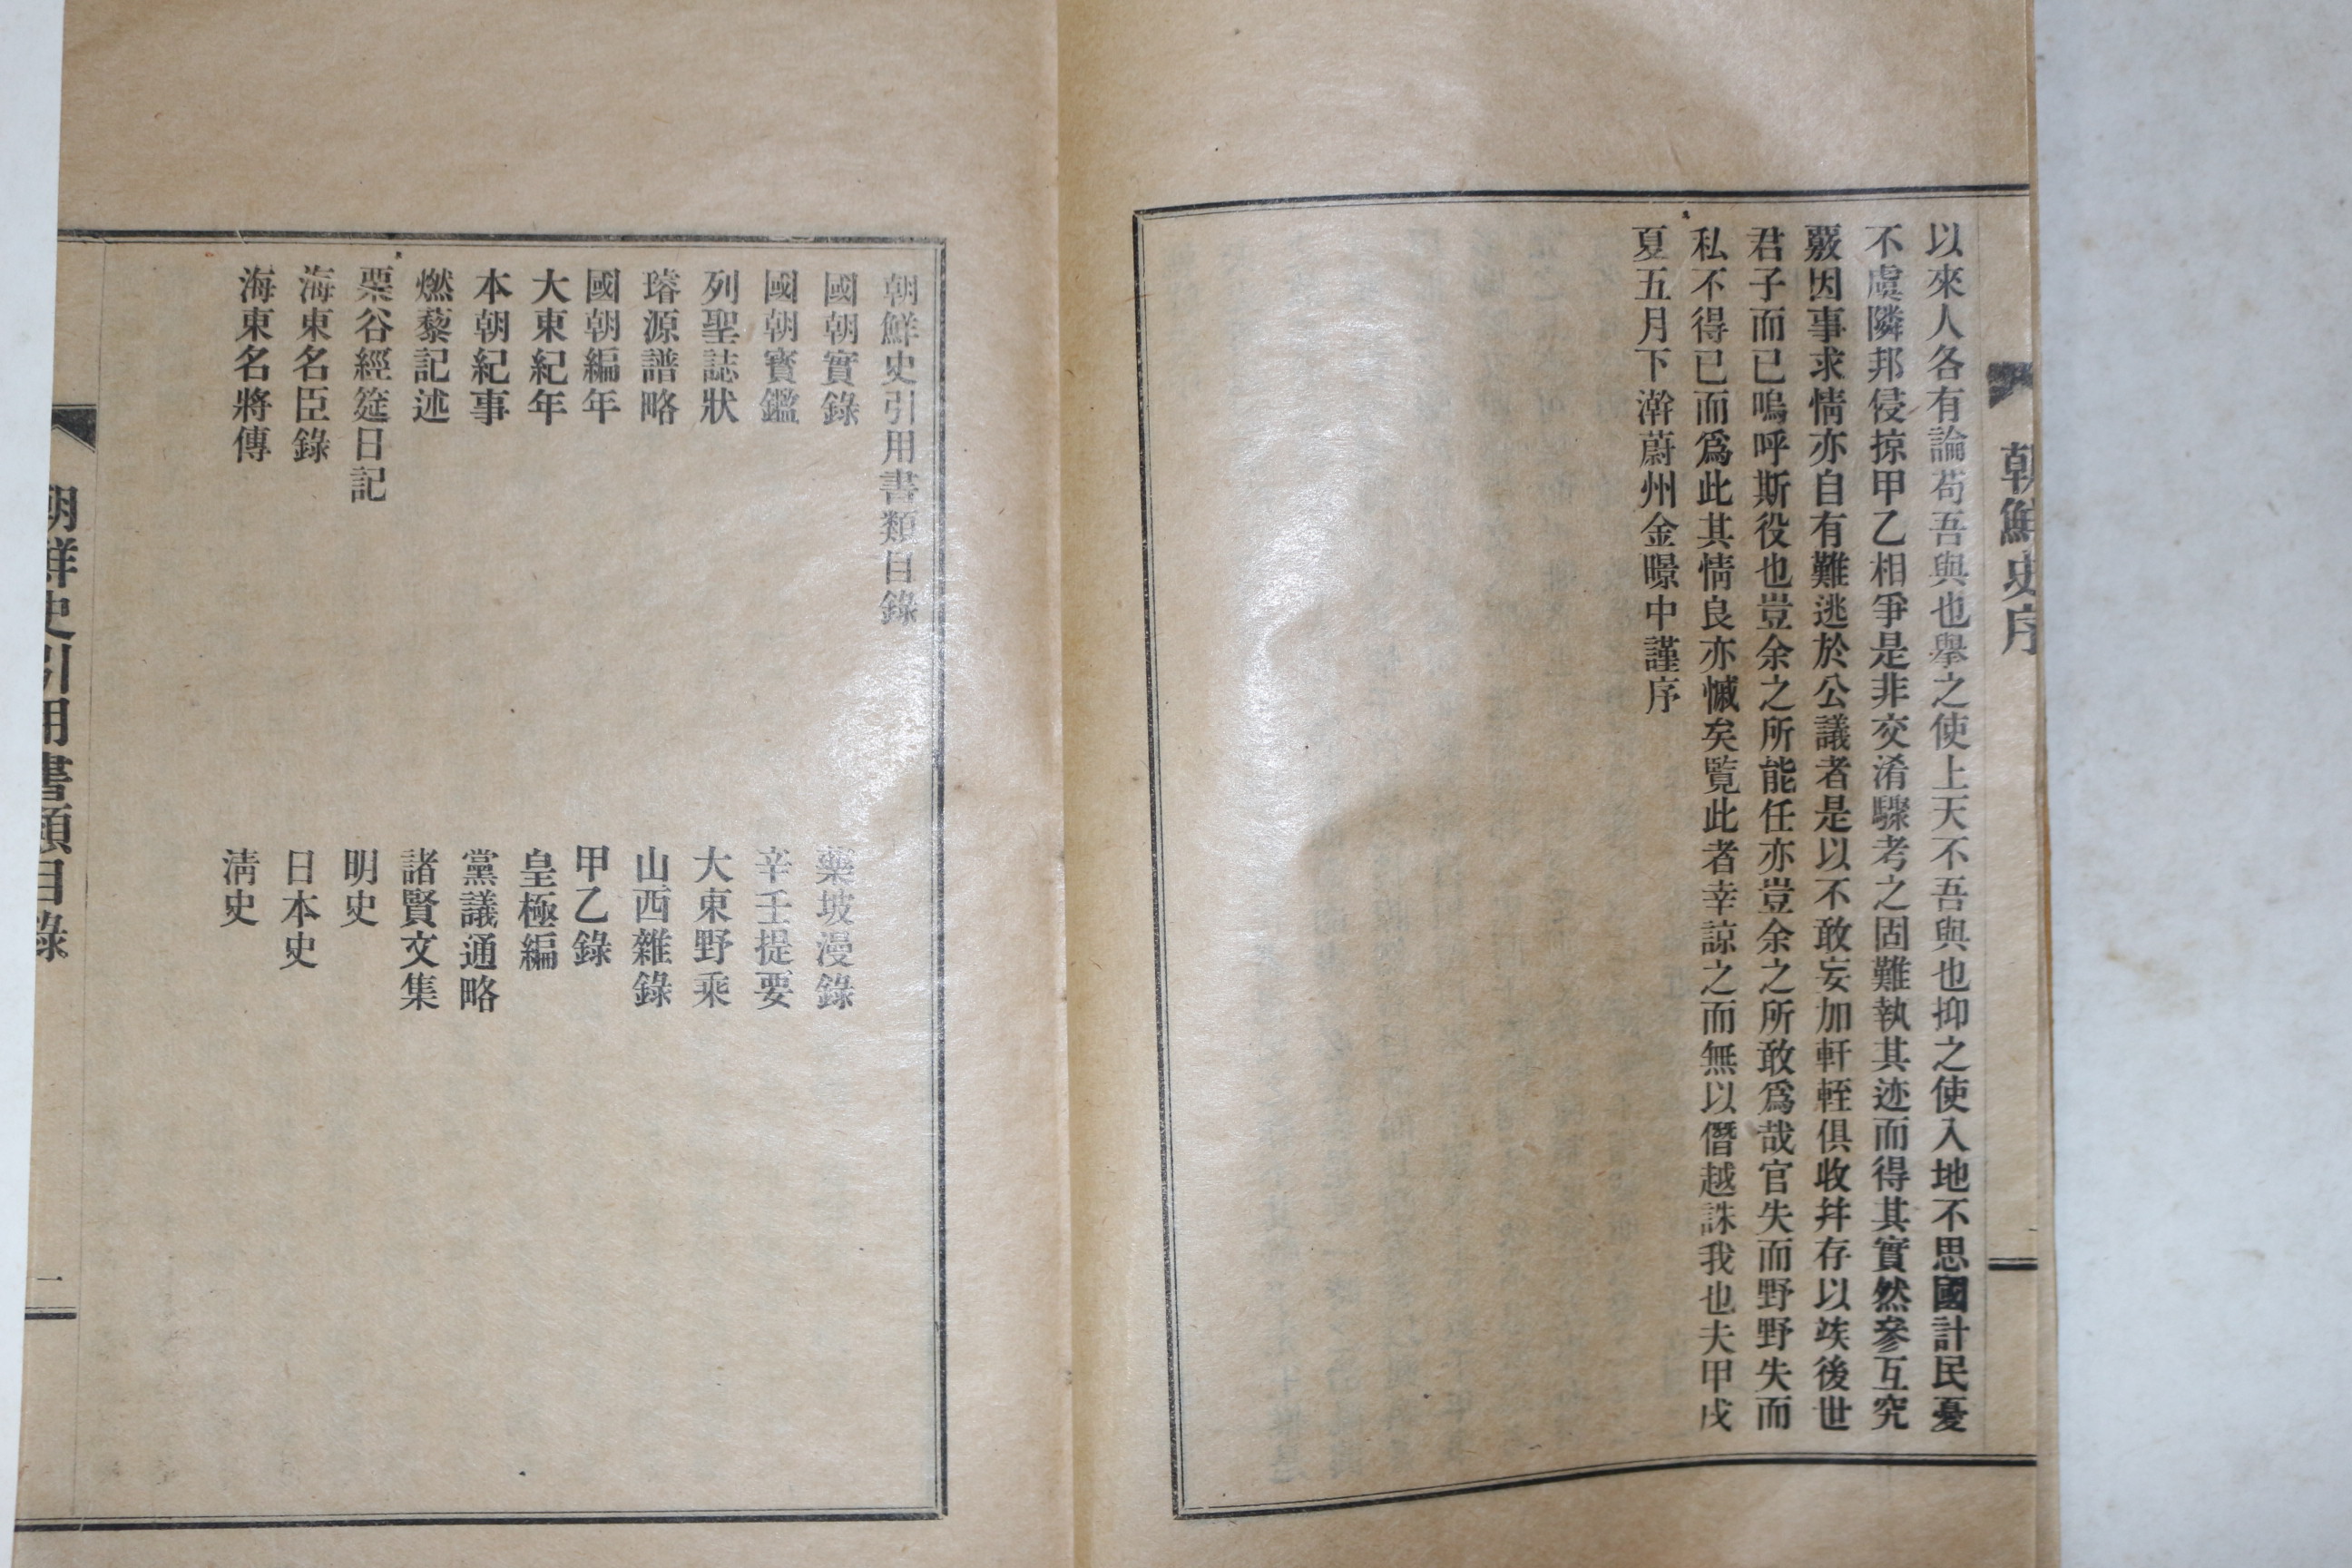 朝鮮史序
以來人各有論苟吾與也擧之使上天不吾與也抑之使入地不思國計民憂
不虞隣邦侵掠甲乙相爭是非交淆驟考之固難執其迹而得其實然參互究
覈因事求情亦自有難逃於公議者是以不敢妄加軒輊俱收幷存以竢後世
君子而已嗚呼斯役也豈余之所能任亦豈余之所敢爲哉官失而野野失而
私不得已而爲此其情良亦慽矣覽此者幸諒之而無以僭越誅我也夫甲戌
夏五月下澣蔚州金暻中謹序
朝鮮史引用書類目錄
國朝實錄
藥坡漫錄
國朝寶鑑
辛壬提要
列聖誌狀
大東野乘
璿源譜略
山西雜錄
國朝編年
甲乙錄
大東紀年
皇極編
本朝紀事
黨議通略
燃藜記述
諸賢文集
栗谷經筵日記
明史
海東名臣錄
日本史
海東名將傳
淸史
朝鮮史引用書類目錄
一